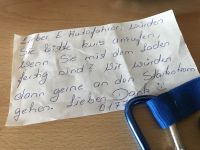 Lieber E-Autofahrer, würden
Sie bitte kurz anrufen,
wenn Sie mit dem laden
fertig sind? Wir würden
dann gerne an den Starkstrom
gehen. Lieben Dank
017